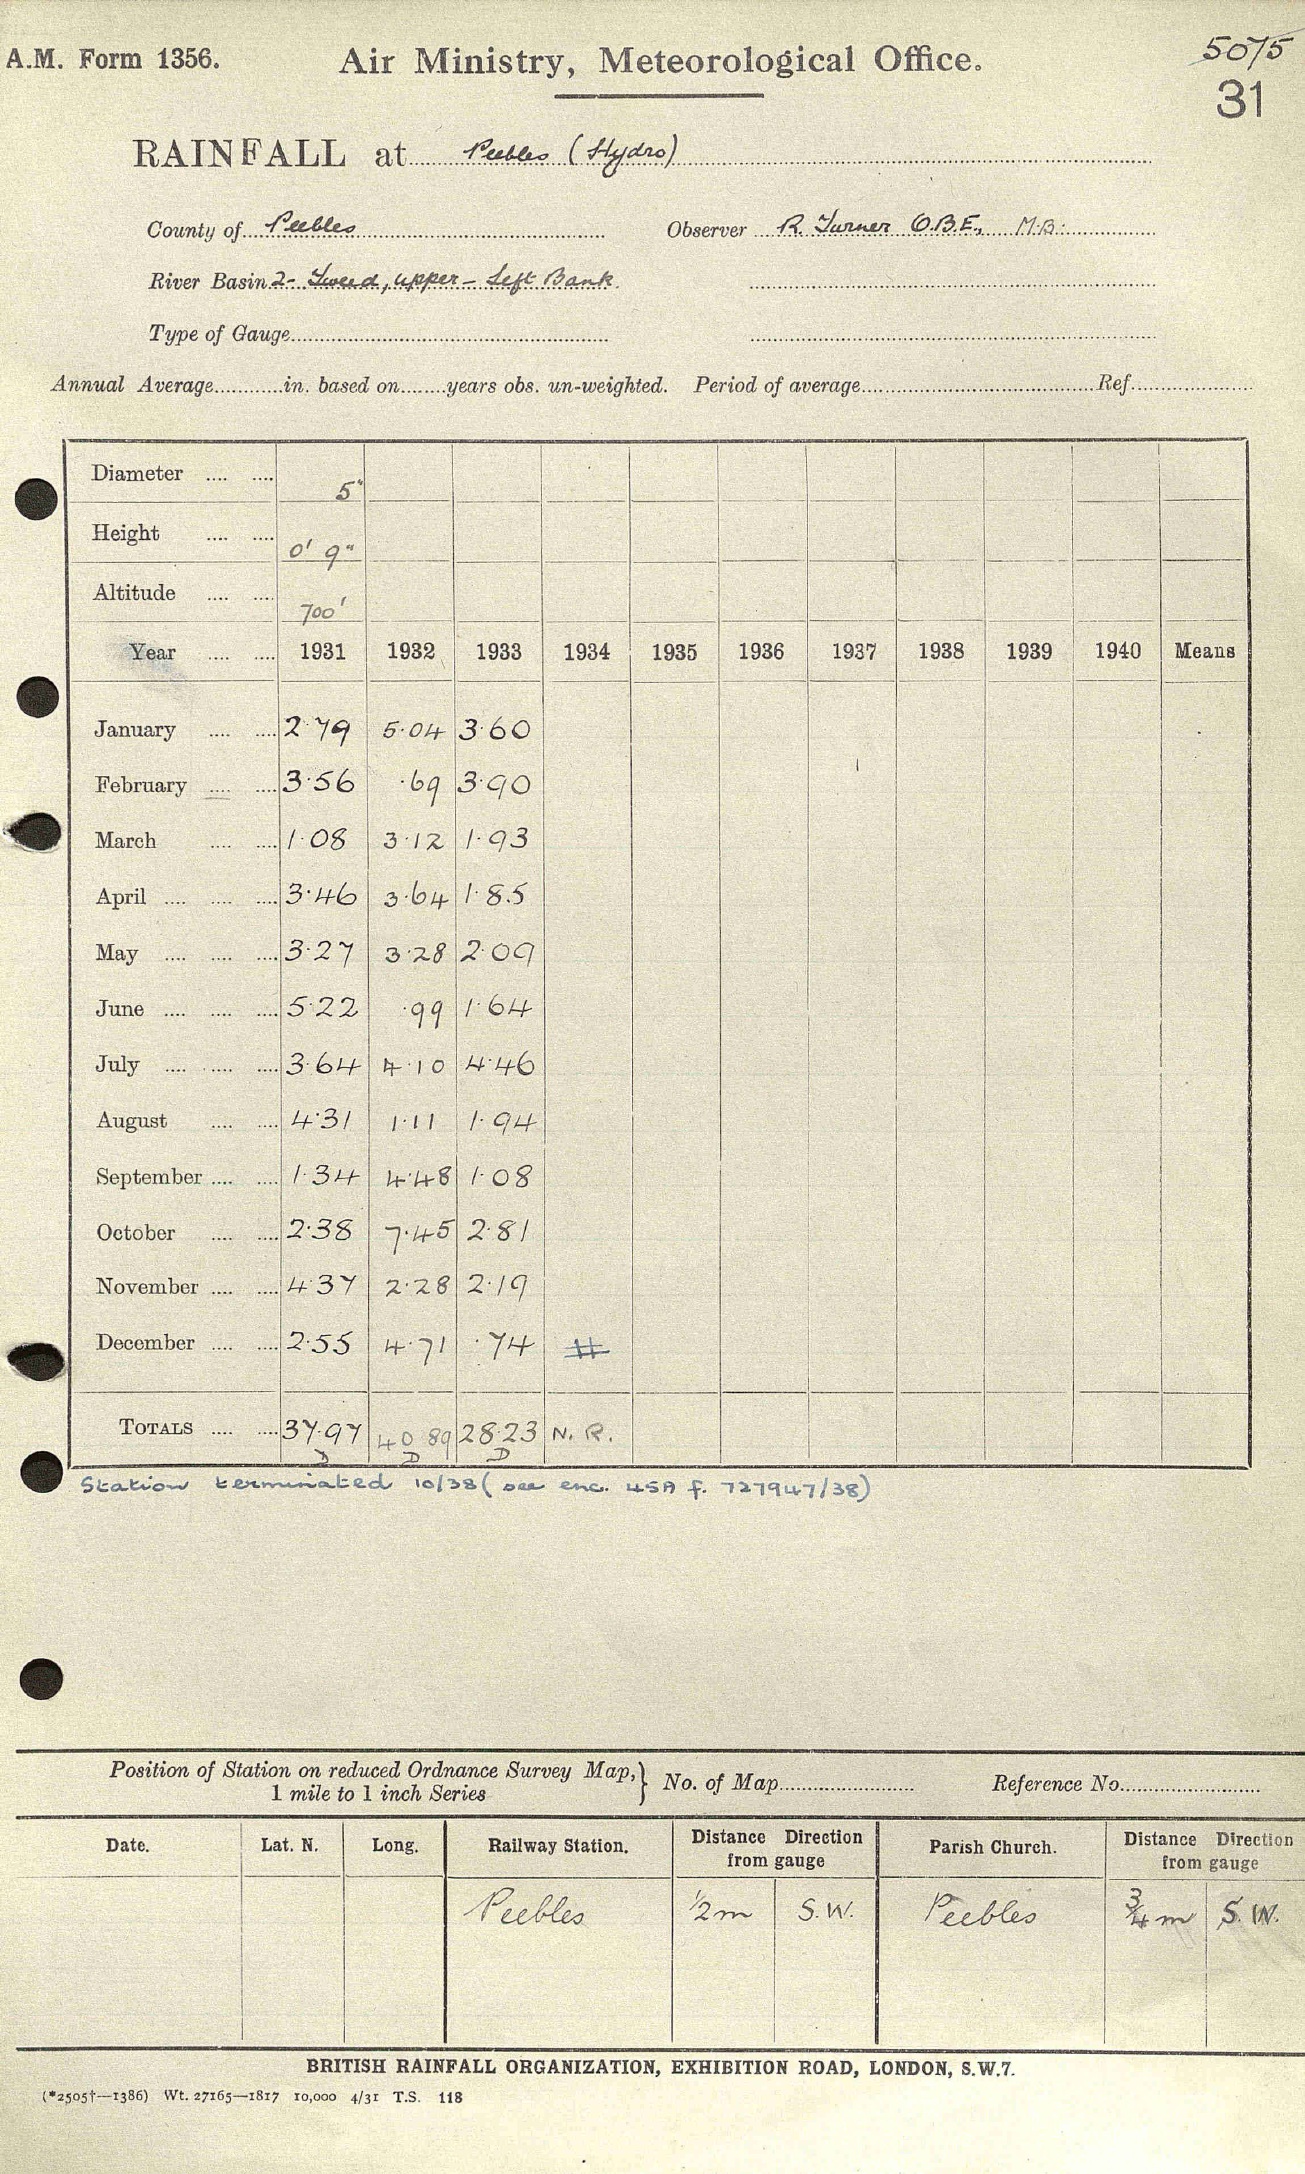 A.M. Form 1356.
Air Ministry, Meteorological Office.
5075
31
RAINFALL at Peebles (Hydro)
County of Peebles
Observer R. Turner O.B.E., M.B.
River Basin 2- Tweed, upper - Left Bank
Type of Gauge
Annual Average in. based on years obs. un-weighted. Period of average Ref.
Diameter 5"
Height 0' 9"
Altitude 700'
Year 1931 1932 1933 1934 1935 1936 1937 1938 1939 1940 Means
January 2.79 5.04 3.60
February 3.56 .69 3.90
March 1.08 3.12 1.93
April 3.46 3.64 1.85
May 3.27 3.28 2.09
June 5.22 .99 1.64
July 3.64 4.10 4.46
August 4.31 1.11 1.94
September 1.34 4.48 1.08
October 2.38 7.45 2.81
November 4.37 2.28 2.19
December 2.55 4.71 .74
TOTALS 37.97 40.89 28.23 N.R.
D D D
Station terminated 10/38 (see enc. 45A f. 727947/38)
Position of Station on reduced Ordnance Survey Map,
1 mile to 1 inch Series
No. of Map Reference No.
Date. Lat. N. Long. Railway Station. Distance Direction from gauge Parish Church. Distance Direction from gauge
Peebles 1/2 m S.W. Peebles 3/4 m S.W.
BRITISH RAINFALL ORGANIZATION, EXHIBITION ROAD, LONDON, S.W.7.
(*2505†—1386) Wt. 27165—1817 10,000 4/31 T.S. 118